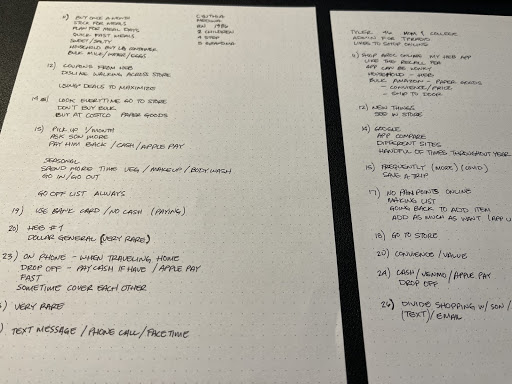 BUY ONCE A MONTH
STICK FOR MEALS
PLAN FOR MEAL DAYS
QUICK FAST MEALS
SWEET/SALTY
HOUSEHOLD BUT
BULK MILK/WATER/EGGS
CYNTHIA
MEDINA
2 CHILDREN
4 STEP
3 GRANDMA
12) COUPONS FROM HEB
DISLIKE WALKING ACROSS STORE
USING DEALS TO MAXIMIZE
14) LOOK EVERYTIME GO TO STORE
DON'T BUY BULK
BUY AT COSTCO PAPER GOODS
15) PICK UP 1/MONTH
ASK SON MORE
PAY HIM BACK / CASH / APPLE PAY
SEASONAL
SPEND MORE TIME VEG / MAKEUP / BODY WASH
GO IN/GO OUT
GO OFF LIST ALWAYS
19) USE BANK CARD / NO CASH (PAYING)
20) HEB #1
DOLLAR GENERAL (VERY RARE)
23) ON PHONE - WHEN TRAVELING HOME
DROP OFF - PAY CASH IF HAVE / APPLE PAY
FAST
SOMETIME COVER EACH OTHER
) VERY RARE
) TEXT MESSAGE / PHONE CALL / FACETIME
TYLER MOM & COLLEGE
ADMIN FOR
LIKES TO SHOP ONLINE
SHOP ONLINE HEB APP
LIKE THE RECALL FOR
APP CAN BE WONKY
HOUSEHOLD - HEB
BULK AMAZON - PAPER GOODS
- CONVENIENCE/PRICE
- SHIP TO DOOR
12) NEW THINGS
SEE IN STORE
14) GOOGLE
APP COMPARE
DIFFERENT SITES
HANDFUL OF TIMES THROUGHOUT YEAR
15) FREQUENTLY (MORE) (COVID)
SAVE A TRIP
17) NO PAIN POINTS ONLINE
MAKING LIST
GOING BACK TO ADD ITEM
ADD AS MUCH AS WANT (APP
18) GO TO STORE
20) CONVIENCE / VALUE
24) CASH/VENMO/APPLE PAY
DROP OFF
26) DIVIDE SHOPPING W/ SON /
(TEXT) / EMAIL